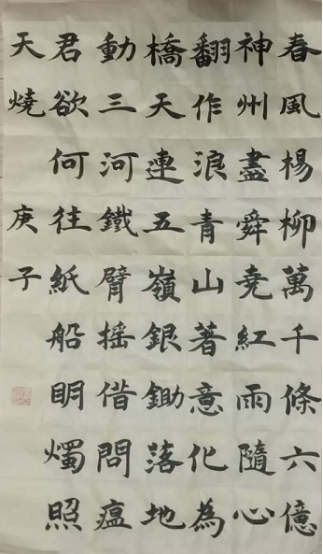 春風楊柳萬千條六億
神州盡舜堯紅雨隨心
翻作浪青山著意化為
橋天連五嶺銀鋤落地
動三河鐵臂搖借問瘟
君欲何往紙船明燭照
天燒 庚子